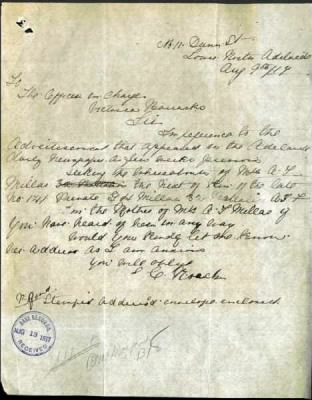 Dunn St
Lower North Adelaide
Aug 9th/17
To
The Officer in Charge
Victoria Barracks
Sir
In reference to the
Advertisement that appeared in the Adelaide
Daily Newspaper a few weeks
the whereabouts of Mrs A
Millar the Next of Kin of the late
No Private Millar A I F
I'm the Mother of Mrs A Millar if
You have heard of her in any way
Would You Kindly let me know
her Address as I am Anxious
You will oblige
E C
Stamped Addressed envelope enclosed
BASE RECORDS
AUG 13 1917
RECEIVED